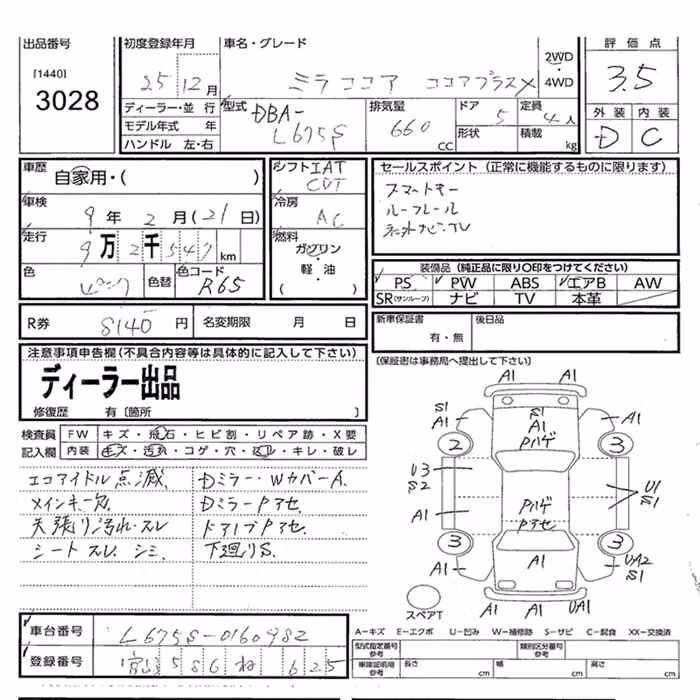 出品番号
[1440]
3028
初度登録年月
25 12月
車名・グレード
ミラココア ココアプラスX
2WD
・
4WD
評価点
3.5
外装 内装
D C
ディーラー・並行
モデル年式 年
ハンドル 左・右
型式
DBA-
L675S
排気量
660
CC
ドア 5
形状
定員 4人
積載 kg
車歴
自家用・( )
車検
9年 2月(21日)
走行
9万2千547km
色 ピンク 色替 色コード R65
シフト IAT
CVT
冷房
AC
燃料
ガソリン
軽・油
( )
セールスポイント (正常に機能するものに限ります)
スマートキー
ルーフレール
社外ナビ・TV
装備品 (純正品に限り○印をつけてください)
PS PW ABS エアB AW
SR(サンルーフ) ナビ TV 本革
R券 8140円 名変期限 月 日
新車保証書
有・無
後日品
(保証書は事務局へ提出して下さい)
注意事項申告欄(不具合内容等は具体的に記入して下さい)
ディーラー出品
修復歴 有〔箇所 〕
検査員
記入欄
FW キズ・飛石・ヒビ割・リペア跡・X要
内装 キズ・汚れ・コゲ・穴・スレ・キレ・破レ
エコアイドル点滅
メインキー欠
天張り汚れ・スレ
シートスレ、シミ
Dミラー・WカバーA
DミラーPアセ
ドアノブPアセ
下廻りS
A1
A1
S1
A1
S1
A1
Pハゲ
A1
2
3
U3
S2
A1
Pハゲ
Pアセ
U1
S1
3
3
A1
A1
UA2
S1
A1
A1
UA1
スペアT
A-キズ E-エクボ U-凹み W-補修跡 S-サビ C-腐食 XX-交換済
車台番号 L675S-0160982
登録番号 586 ね 625
型式指定番号
参考
類別区分番号
参考
車庫証明用
参考
長さ cm
幅 cm
高さ cm